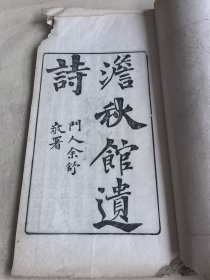 澹秋館遺
詩
門人余舒
敬署